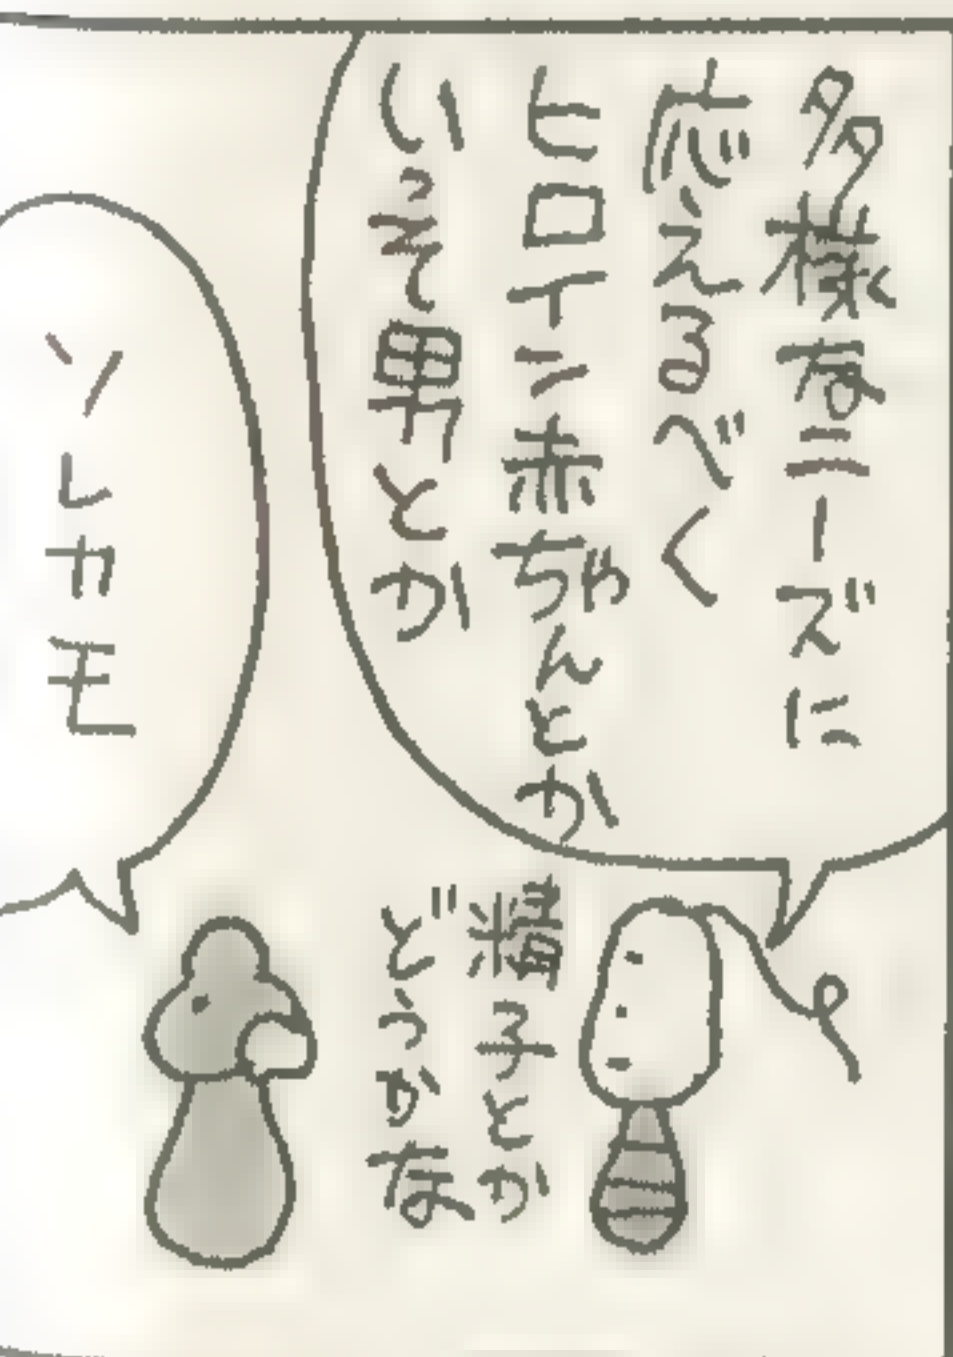 多様なニーズに
応えるべく
ヒロイン赤ちゃんとか
いっそ男とか
精子とか
どうかな
ソレカモ